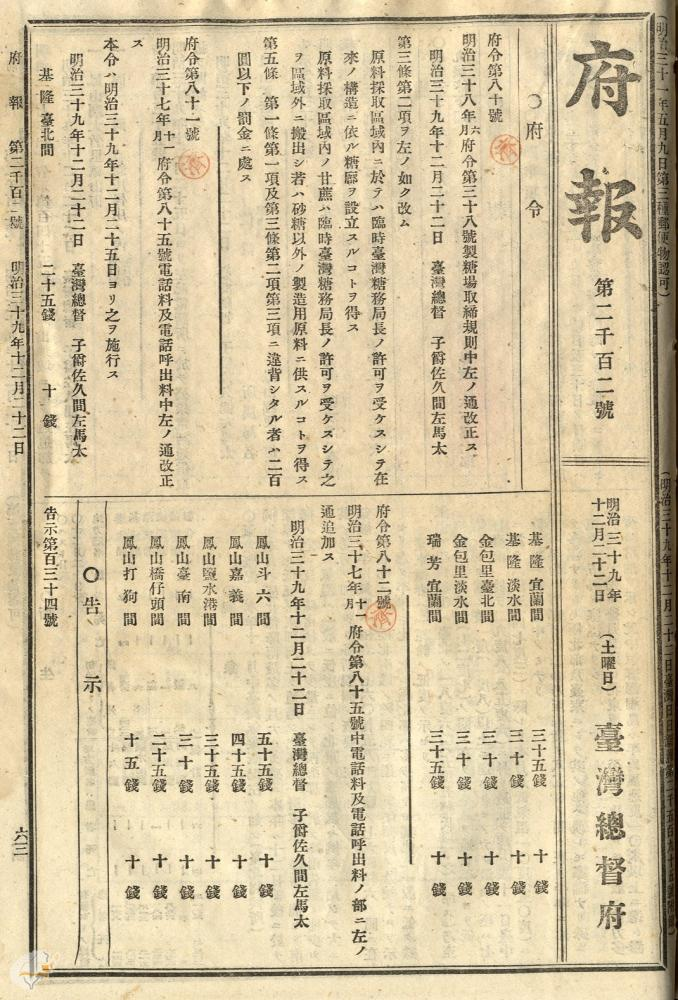 (明治三十一年五月九日第三種郵便物認可)
府報
第二千百二號
明治三十九年
十二月二十二日
(土曜日)
臺灣總督府
〇府令
府令第八十號
明治三十八年六月府令第三十八號製糖場取締規則中左ノ通改正ス
明治三十九年十二月二十二日 臺灣總督 子爵佐久間左馬太
第三條第二項ヲ左ノ如ク改ム
原料採取區域內ニ於テハ臨時臺灣糖務局長ノ許可ヲ受ケスシテ在
來ノ構造ニ依ル糖廍ヲ設立スルコトヲ得ス
原料採取區域內ノ甘蔗ハ臨時臺灣糖務局長ノ許可ヲ受ケスシテ之
ヲ區域外ニ搬出シ若ハ砂糖以外ノ製造用原料ニ供スルコトヲ得ス
第五條 第一條第一項及第三條第二項第三項ニ違背シタル者ハ二百
圓以下ノ罰金ニ處ス
府令第八十一號
明治三十七年十一月府令第八十五號電話料及電話呼出料中左ノ通改正
ス
本令ハ明治三十九年十二月二十五日ヨリ之ヲ施行ス
明治三十九年十二月二十二日 臺灣總督 子爵佐久間左馬太
基隆臺北間 二十五錢 十錢
基隆宜蘭間 三十五錢 十錢
基隆淡水間 三十錢 十錢
金包里臺北間 三十錢 十錢
金包里淡水間 三十錢 十錢
瑞芳宜蘭間 三十五錢 十錢
府令第八十二號
明治三十七年十一月府令第八十五號中電話料及電話呼出料ノ部ニ左ノ
通追加ス
明治三十九年十二月二十二日 臺灣總督 子爵佐久間左馬太
鳳山斗六間 五十五錢 十錢
鳳山嘉義間 四十五錢 十錢
鳳山鹽水港間 三十五錢 十錢
鳳山臺南間 三十錢 十錢
鳳山橋仔頭間 二十五錢 十錢
鳳山打狗間 十五錢 十錢
〇告示
告示第百三十四號
府報 第二千百二號 明治三十九年十二月二十二日
六三